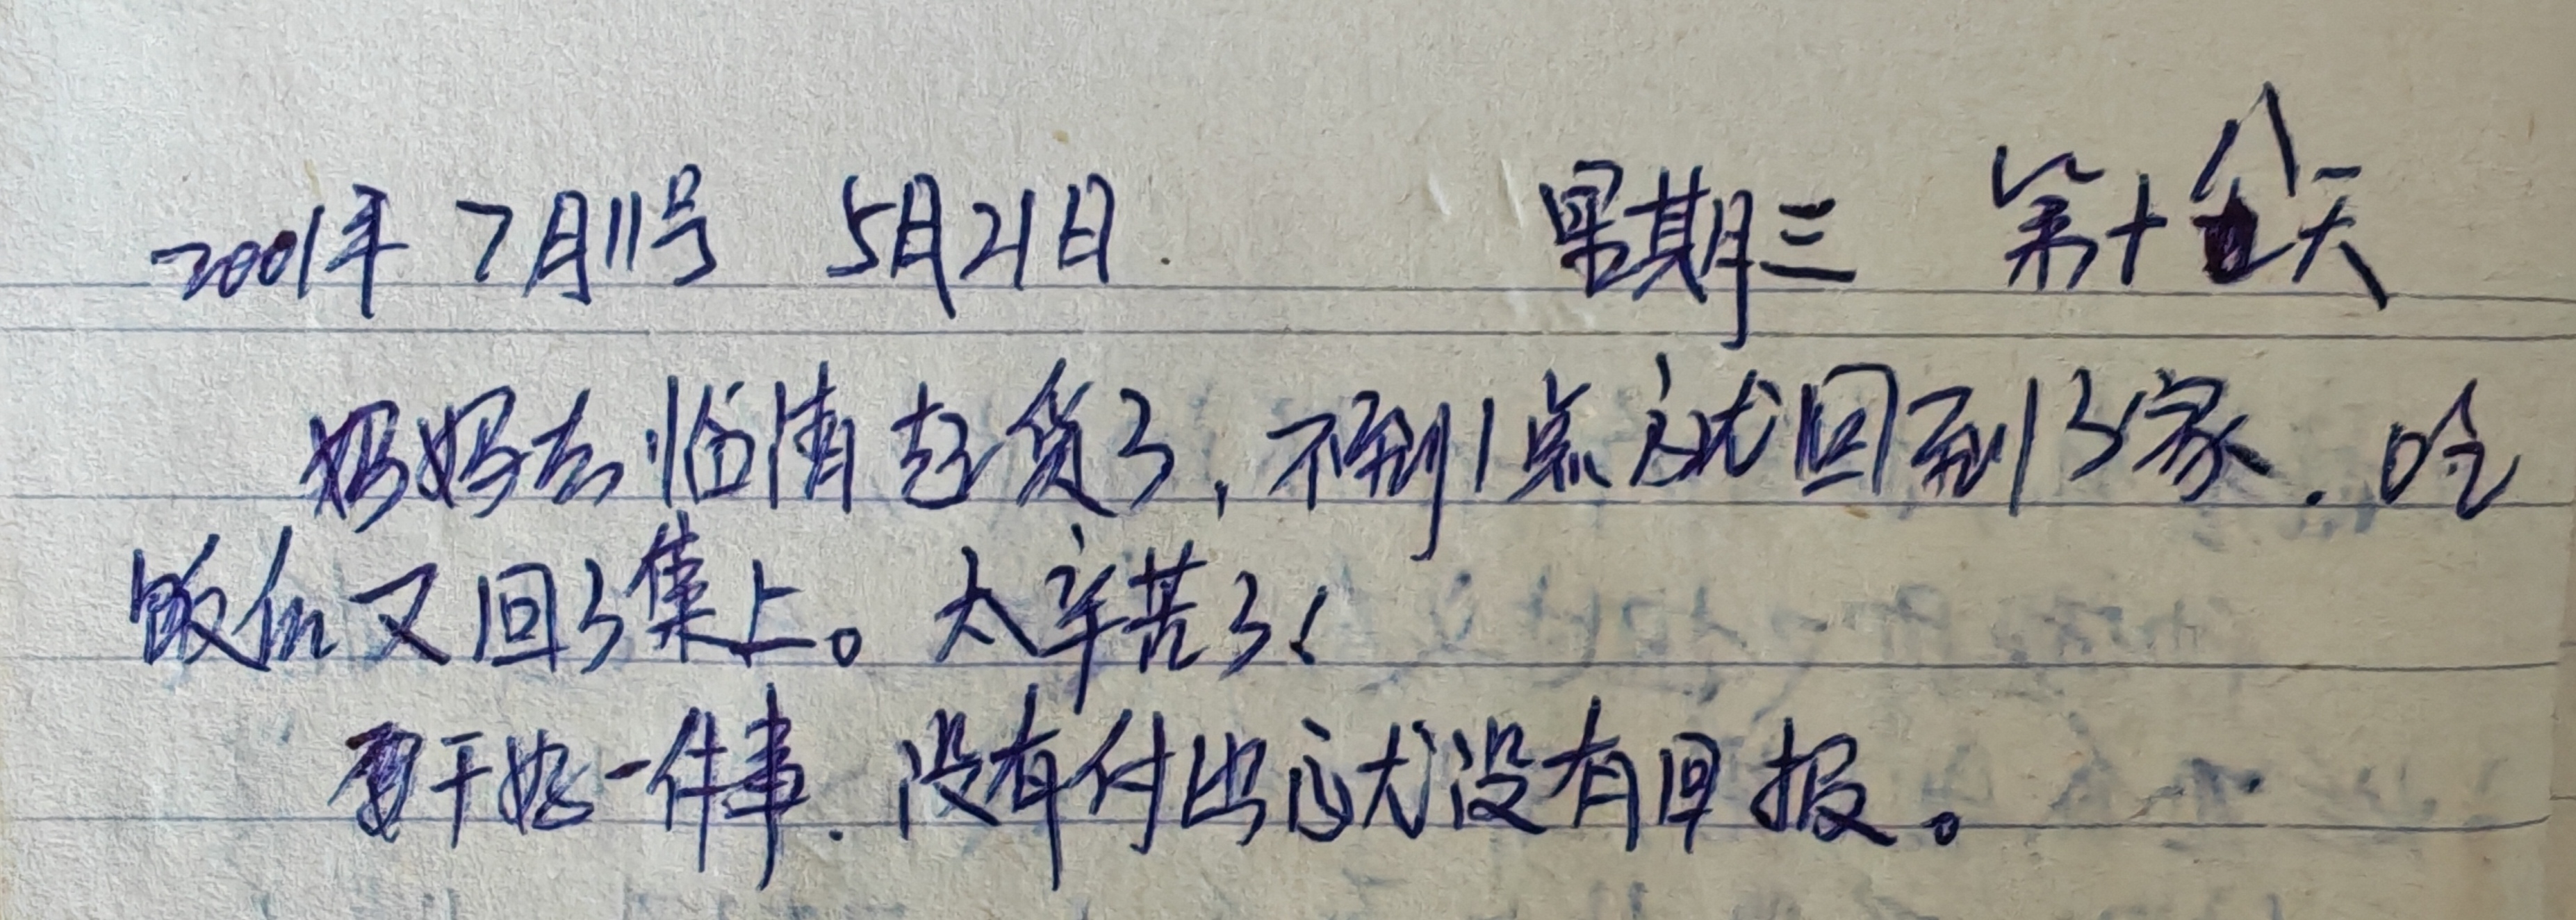 2001年 7月11号 5月21日. 星期三 第十天
妈妈去临清起货了,不到1点就回到了家.吃
饭后又回了集上。太辛苦了!
要干好一件事.没有付出就没有回报。